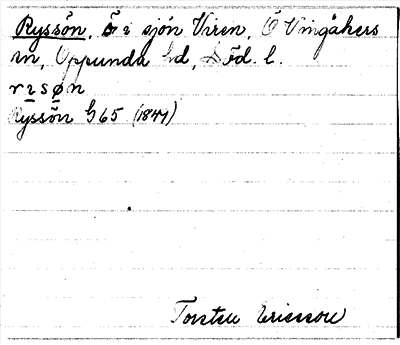 Ryssön, ö i sjön Viren, Ö Vingåkers
sn, Oppunda hd, Sdl. l.
rısøn
Ryssön G65 (1847)
Torsten Ericsson